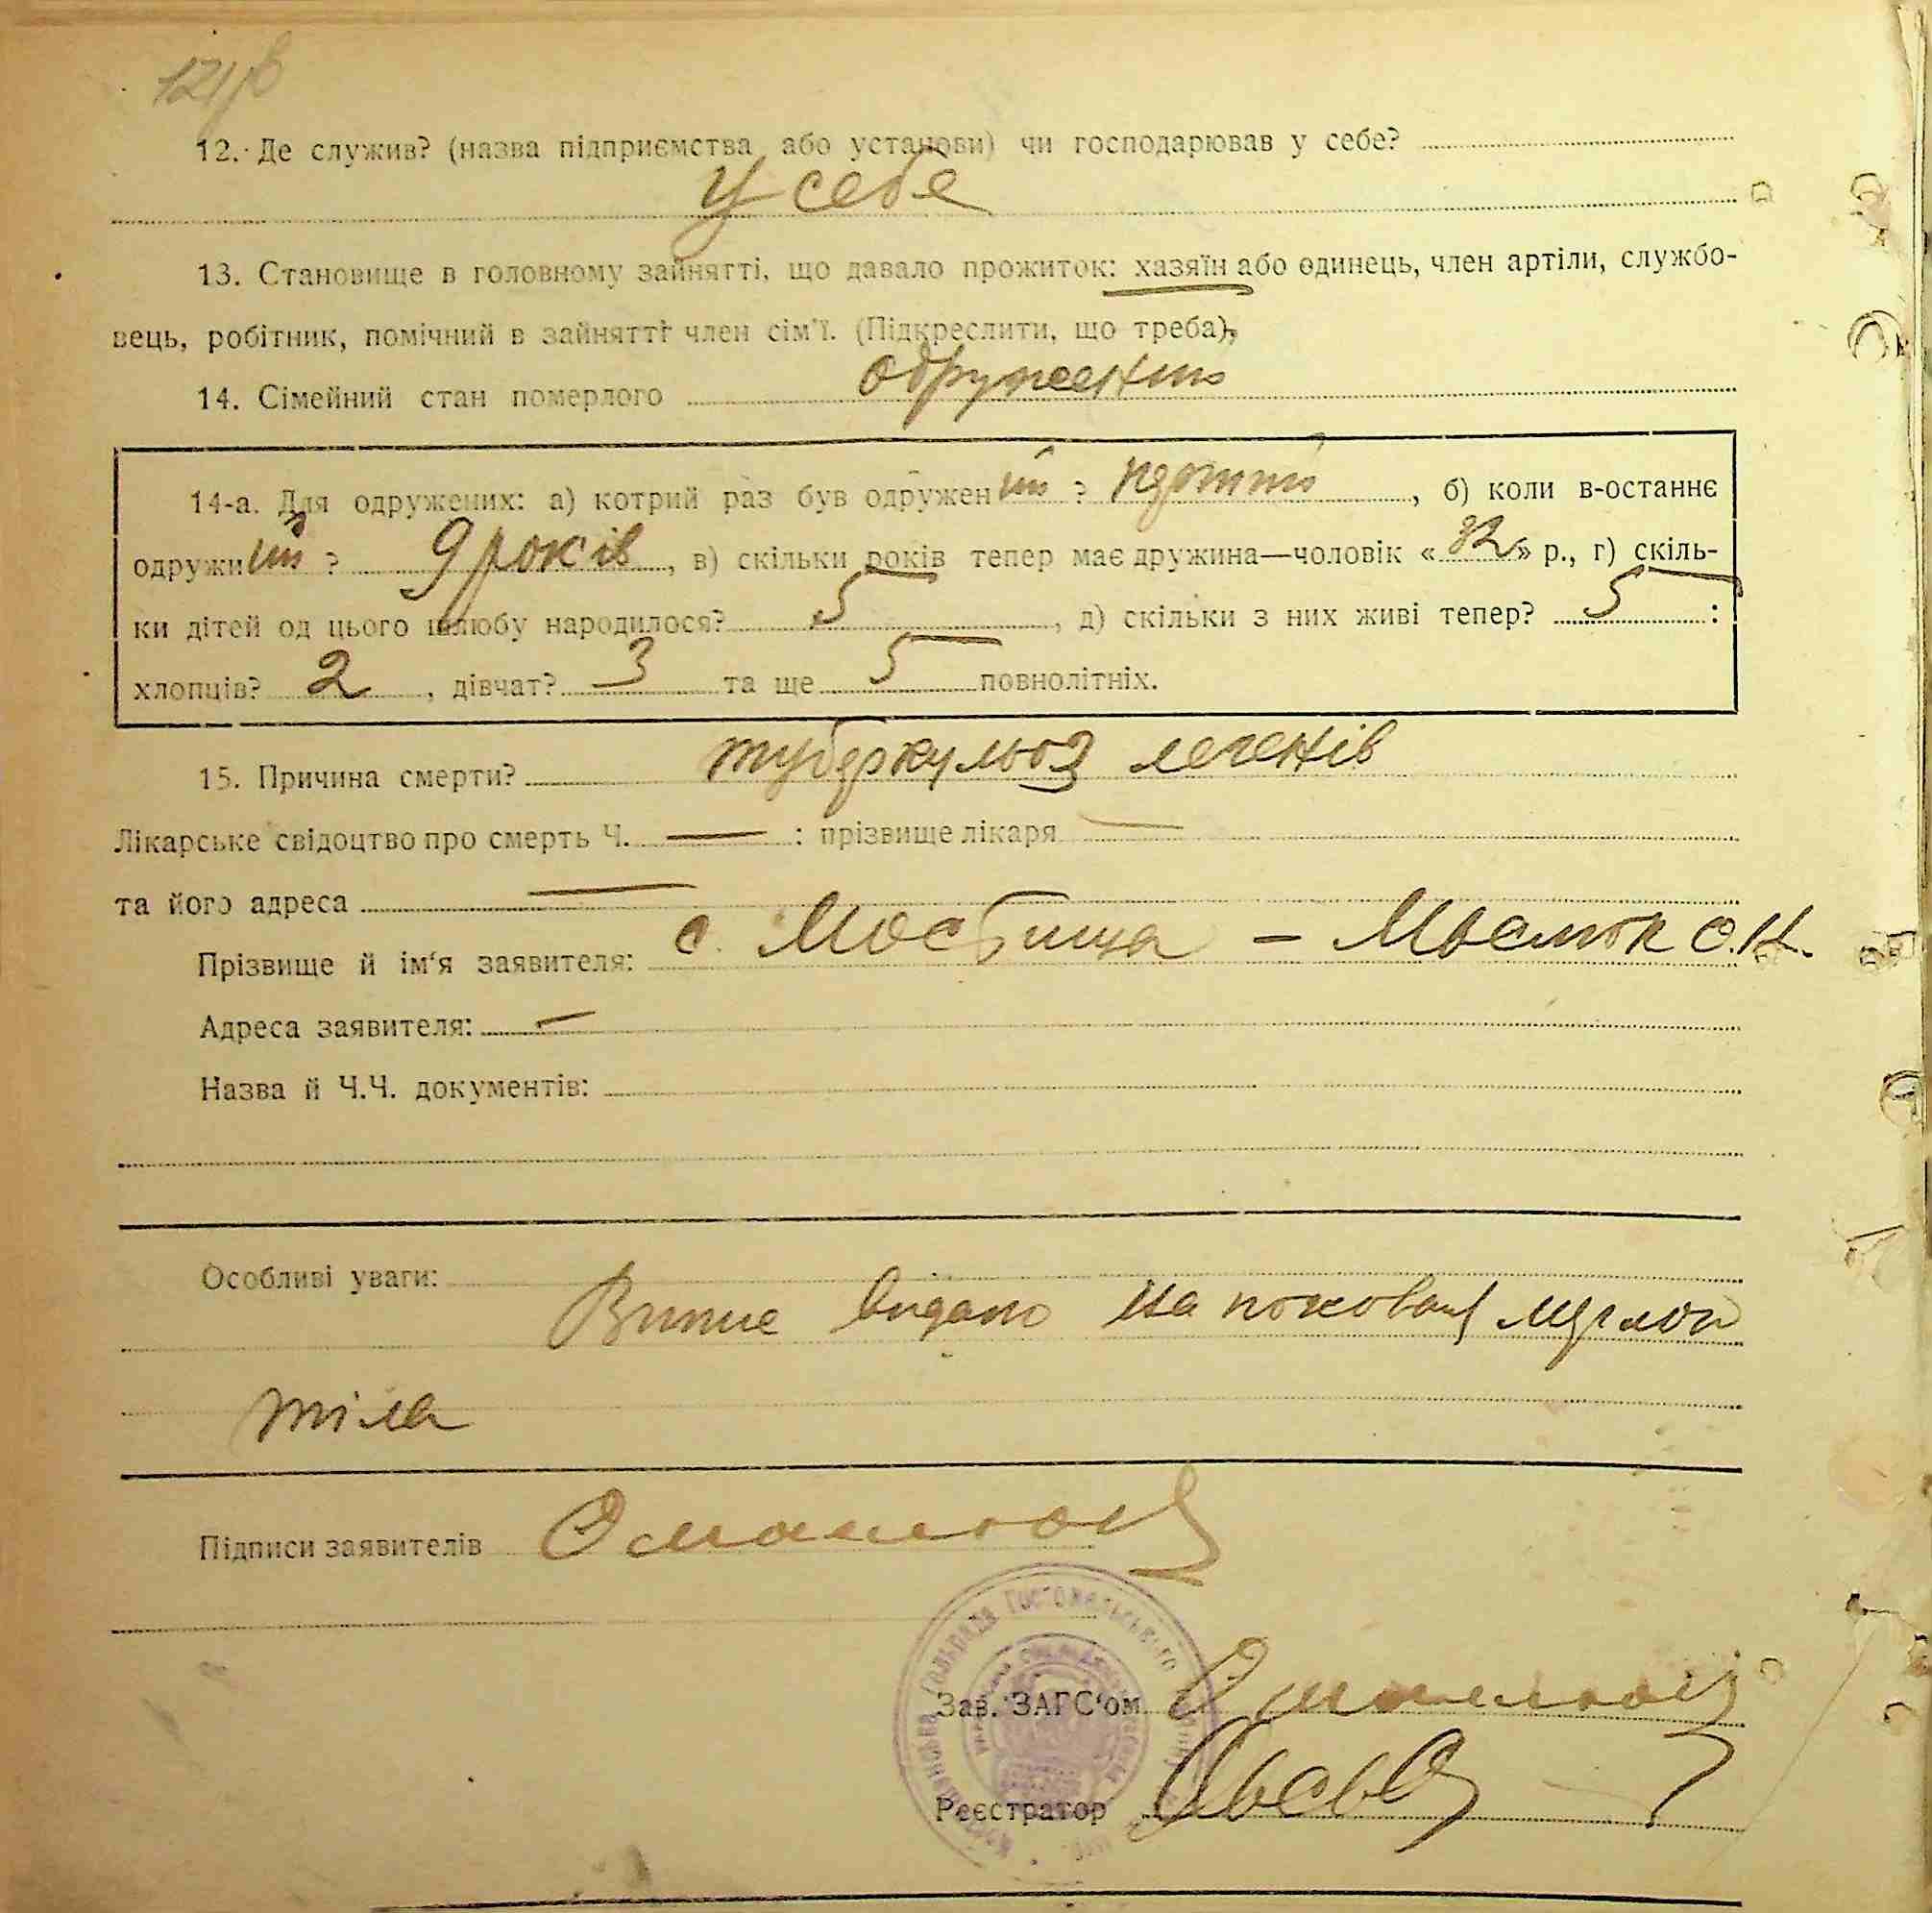 12. Де служив? (назва підприємства або установи) чи господарював у себе?
у себе
13. Становище в головному зайнятті, що давало прожиток: хазяїн або одинець, член артіли, службо-
вець, робітник, помічний в зайнятті член сім'ї. (Підкреслити, що треба),
14. Сімейний стан померлого одружений
14-а. Для одружених: а) котрий раз був одружений ? , б) коли в-останнє
одружи ? 9 років, в) скільки років тепер має дружина—чоловік « » р., г) скіль-
ки дітей од цього шлюбу народилося? 5, д) скільки з них живі тепер? 5:
хлопців? 2, дівчат? 3 та ще 5 повнолітніх.
15. Причина смерти? туберкульоз легенів
Лікарське свідоцтво про смерть Ч. — : прізвище лікаря —
та його адреса —
Прізвище й ім'я заявителя: с. Мостища –
Адреса заявителя: —
Назва й Ч.Ч. документів:
Особливі уваги:
видано на
тіла
Підписи заявителів
Зав. ЗАГС'ом
Реєстратор